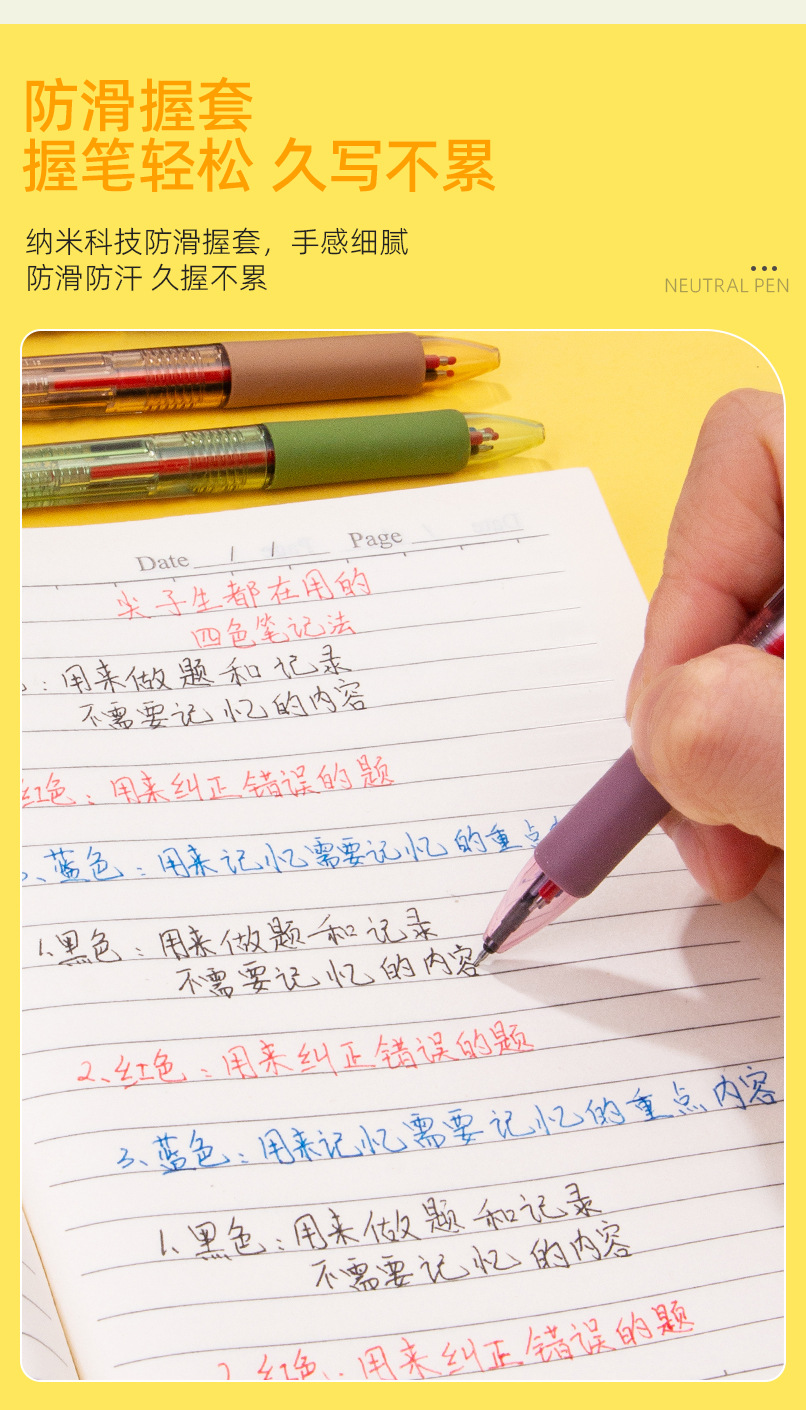 防滑握套
握笔轻松 久写不累
纳米科技防滑握套，手感细腻
防滑防汗 久握不累
NEUTRAL PEN
Date / / Page
尖子生都在用的
四色笔记法
：用来做题和记录
不需要记忆的内容
红色：用来纠正错误的题
、蓝色：用来记忆需要记忆的重点
1.黑色：用来做题和记录
不需要记忆的内容
2、红色：用来纠正错误的题
3、蓝色：用来记忆需要记忆的重点内容
1、黑色：用来做题和记录
不需要记忆的内容
2、红色：用来纠正错误的题